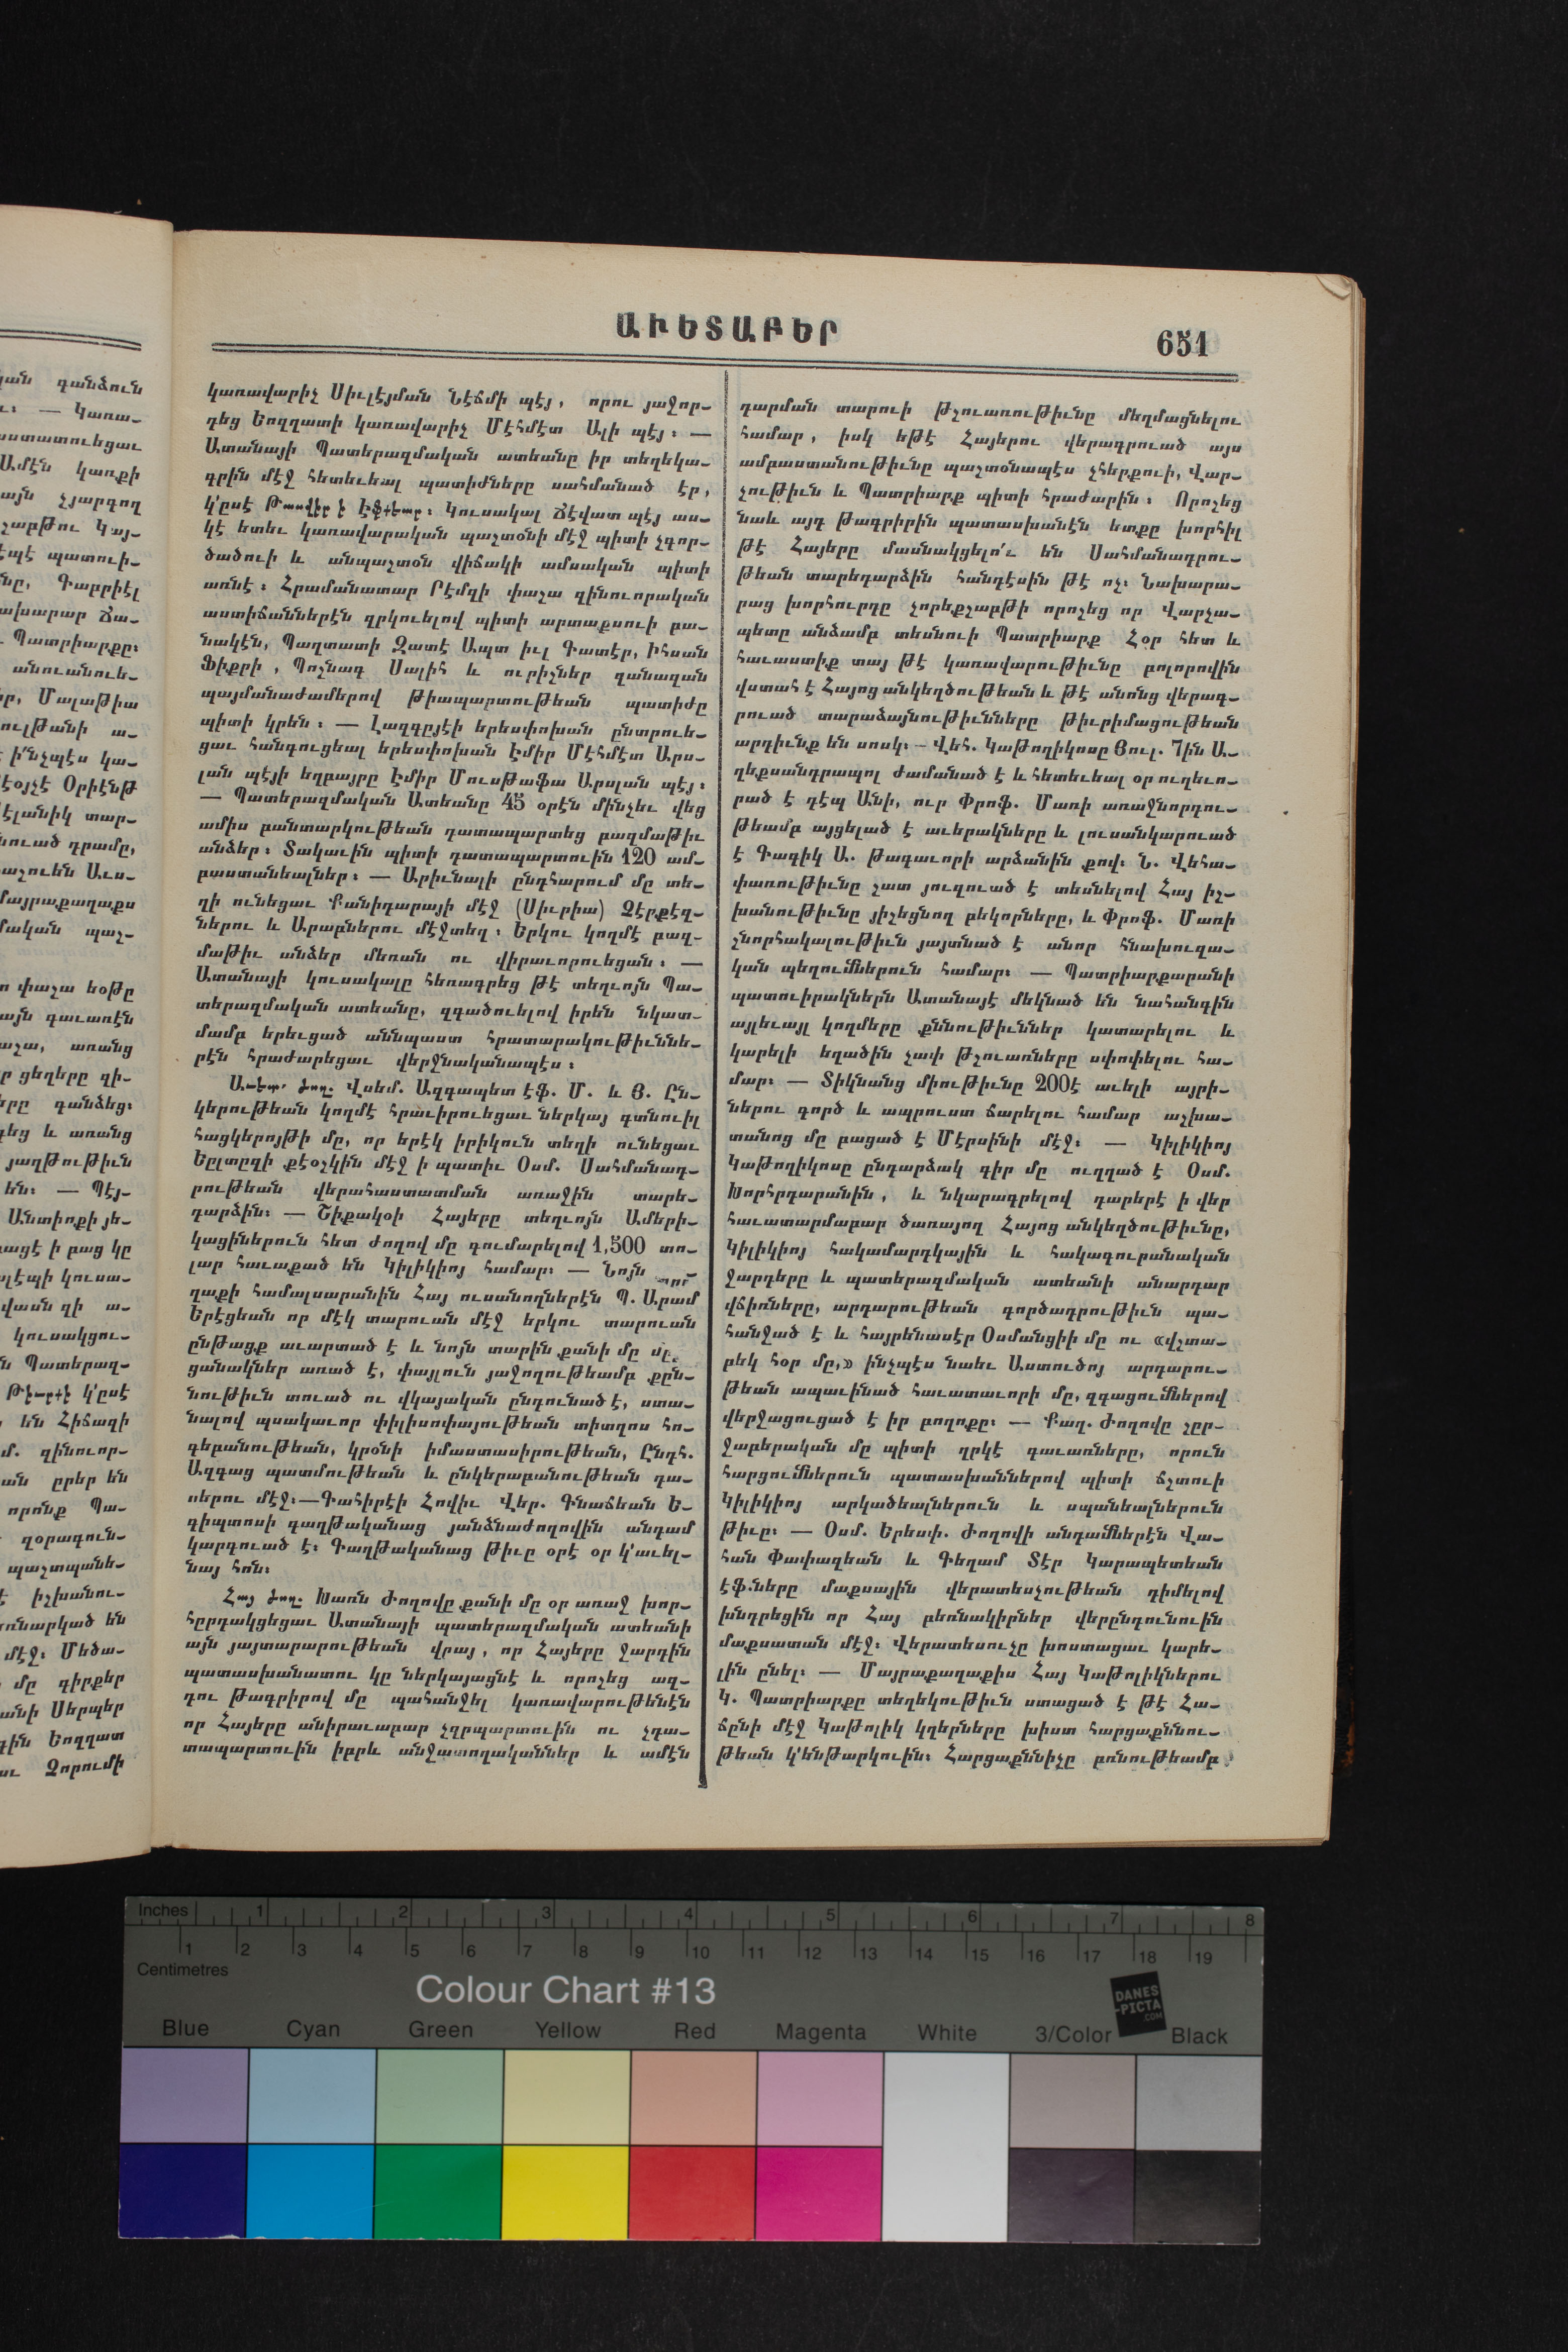 ԱՒԵՏԱԲԵՐ
651
կառավարիչ Սիւլէյման Նէճմի պէյ, որու յաջոր-
դեց Եոզղատի կառավարիչ Մէհմէտ Ալի պէյ։ —
Ատանայի Պատերազմական ատեանը իր տեղեկա-
գրին մէջ հետեւեալ պատիժները սահմանած էր,
կ՚ըսէ Թասվիր ի էֆքեար։ Կուսակալ Ճէվատ պէյ աս-
կէ ետեւ կառավարական պաշտօնի մէջ պիտի չգոր-
ծածուի և անպաշտօն վիճակի ամսական պիտի
առնէ։ Հրամանատար Րէմզի փաշա զինուորական
աստիճաններէն զրկուելով պիտի արտաքսուի բա-
նակէն, Պաղտատի Զատէ Ապտ իւլ Գատէր, Իհսան
Ֆիքրի, Պոշնագ Սալիհ և ուրիշներ զանազան
պայմանաժամերով թիապարտութեան պատիժը
պիտի կրեն։ — Լազգըյէի երեսփոխան ընտրուե-
ցաւ հանգուցեալ երեսփոխան Էմիր Մէհմէտ Արս-
լան պէյի եղբայրը Էմիր Մուսթաֆա Արսլան պէյ։
— Պատերազմական Ատեանը 45 օրէն մինչեւ վեց
ամիս բանտարկութեան դատապարտեց բազմաթիւ
անձեր։ Տակաւին պիտի դատապարտուին 120 ամ-
բաստանեալներ։ — Արիւնալի ընդհարում մը տե-
ղի ունեցաւ Քանիդարայի մէջ (Սիւրիա) Չէրքէզ-
ներու և Արաբներու մէջտեղ։ Երկու կողմէ բազ-
մաթիւ անձեր մեռան ու վիրաւորուեցան։ —
Ատանայի կուսակալը հեռագրեց թէ տեղւոյն Պա-
տերազմական ատեանը, զգածուելով իրեն նկատ-
մամբ երեւցած աննպաստ հրատարակութիւննե-
րէն հրաժարեցաւ վերջնականապէս։
Աւետ. ժող. Վսեմ. Ազգապետ էֆ. Մ. և Յ. Ըն-
կերութեան կողմէ հրաւիրուեցաւ ներկայ գտնուիլ
հացկերոյթի մը, որ երէկ իրիկուն տեղի ունեցաւ
Եըլտըզի քէօշկին մէջ ի պատիւ Օսմ. Սահմանադ-
րութեան վերահաստատման առաջին տարե-
դարձին։ — Շիքակօի Հայերը տեղւոյն Ամերի-
կացիներուն հետ ժողով մը գումարելով 1,500 տո-
լար հաւաքած են Կիլիկիոյ համար։ — Նոյն
ղաքի համալսարանին Հայ ուսանողներէն Պ. Արամ
Երէցեան որ մէկ տարուան մէջ երկու տարուան
ընթացք աւարտած է և նոյն տարին քանի մը մը
ցանակներ առած է, փայլուն յաջողութեամբ քըն-
նութիւն տուած ու վկայական ընդունած է, ստա-
նալով պսակաւոր փիլիսոփայութեան տիտղոս հո-
գեբանութեան, կրօնի իմաստասիրութեան, Ընդհ.
Ազգաց պատմութեան և ընկերաբանութեան դա-
սերու մէջ։—Գահիրէի Հովիւ Վեր. Գնաճեան Ե-
գիպտոսի գաղթականաց յանձնաժողովին անդամ
կարդուած է։ Գաղթականաց թիւը օրէ օր կ՚աւել-
նայ հոն։
Հայ ժող. Խառն Ժողովը քանի մը օր առաջ խոր-
հըրդակցեցաւ Ատանայի պատերազմական ատեանի
այն յայտարարութեան վրայ, որ Հայերը ջարդին
պատասխանատու կը ներկայացնէ և որոշեց ազ-
դու թագրիրով մը պահանջել կառավարութենէն
որ Հայերը անիրաւաբար չզրպարտուին ու չդա-
տապարտուին իբրև անջատողականներ և ամէն
դարման տարուի թշուառութիւնը մեղմացնելու
համար, իսկ եթէ Հայերու վերագրուած այս
ամբաստանութիւնը պաշտօնապէս չհերքուի, Վար-
չութիւն և Պատրիարք պիտի հրաժարին։ Որոշեց
նաև այդ թագրիրին պատասխանէն ետքը խորհիլ
թէ Հայերը մասնակցելո՛ւ են Սահմանադրու-
թեան տարեդարձին հանդէսին թէ ոչ։ Նախարա-
րաց խորհուրդը չորեքշաբթի որոշեց որ Վարչա-
պետը անձամբ տեսնուի Պատրիարք Հօր հետ և
հաւաստիք տայ թէ կառավարութիւնը բոլորովին
վստահ է Հայոց անկեղծութեան և թէ անոնց վերագ-
րուած տարաձայնութիւնները թիւրիմացութեան
արդիւնք են սոսկ։ — Վեհ. Կաթողիկոսը Յուլ. 7ին Ա-
ղեքսանդրապոլ ժամանած է և հետեւեալ օր ուղեւո-
րած է դէպ Անի, ուր Փրոֆ. Մառի առաջնորդու-
թեամբ այցելած է աւերակները և լուսանկարուած
է Գագիկ Ա. թագաւորի արձանին քով։ Ն. Վեհա-
փառութիւնը շատ յուզուած է տեսնելով Հայ իշ-
խանութիւնը յիշեցնող բեկորները, և Փրոֆ. Մառի
շնորհակալութիւն յայտնած է անոր հնախուզա-
կան պեղումներուն համար։ — Պատրիարքարանի
պատուիրակներն Ատանայէ մեկնած են նահանգին
այլեւայլ կողմերը քննութիւններ կատարելու և
կարելի եղածին չափ թշուառները սփոփելու հա-
մար։ — Տիկնանց միութիւնը 200է աւելի այրի-
ներու գործ և ապրուստ ճարելու համար աշխա-
տանոց մը բացած է Մէրսինի մէջ։ — Կիլիկիոյ
Կաթողիկոսը ընդարձակ գիր մը ուղղած է Օսմ.
Խորհրդարանին, և նկարագրելով դարերէ ի վեր
հաւատարմաբար ծառայող Հայոց անկեղծութիւնը,
Կիլիկիոյ հակամարդկային և հակագուրանական
ջարդերը և պատերազմական ատեանի անարդար
վճիռները, արդարութեան գործադրութիւն պա-
հանջած է և հայրենասէր Օսմանցիի մը ու «վշտա-
բեկ հօր մը,» ինչպէս նաեւ Աստուծոյ արդարու-
թեան ապաւինած հաւատաւորի մը, զգացումներով
վերջացուցած է իր բողոքը։ — Քաղ. Ժողովը շըր-
ջաբերական մը պիտի ղրկէ գաւառները, որուն
հարցումներուն պատասխաններով պիտի ճշտուի
Կիլիկիոյ արկածեալներուն և սպանեալներուն
թիւը։ — Օսմ. Երեսփ. Ժողովի անդամներէն Վա-
հան Փափազեան և Գեղամ Տէր Կարապետեան
էֆ.ները մաքսային վերատեսչութեան դիմելով
խնդրեցին որ Հայ բեռնակիրներ վերընդունուին
մաքսատան մէջ։ Վերատեսուչը խոստացաւ կարե-
լին ընել։ — Մայրաքաղաքիս Հայ Կաթոլիկներու
Կ. Պատրիարքը տեղեկութիւն ստացած է թէ Հա-
ճընի մէջ Կաթոլիկ կղերները խիստ հարցաքննու-
թեան կ՚ենթարկուին։ Հարցաքննիչը բռնութեամբ
Inches 1 2 3 4 5 6 7 8
1 2 3 4 5 6 7 8 9 10 11 12 13 14 15 16 17 18 19
Centimetres
Colour Chart #13
DANES
-PICTA
.COM
Blue Cyan Green Yellow Red Magenta White 3/Color Black